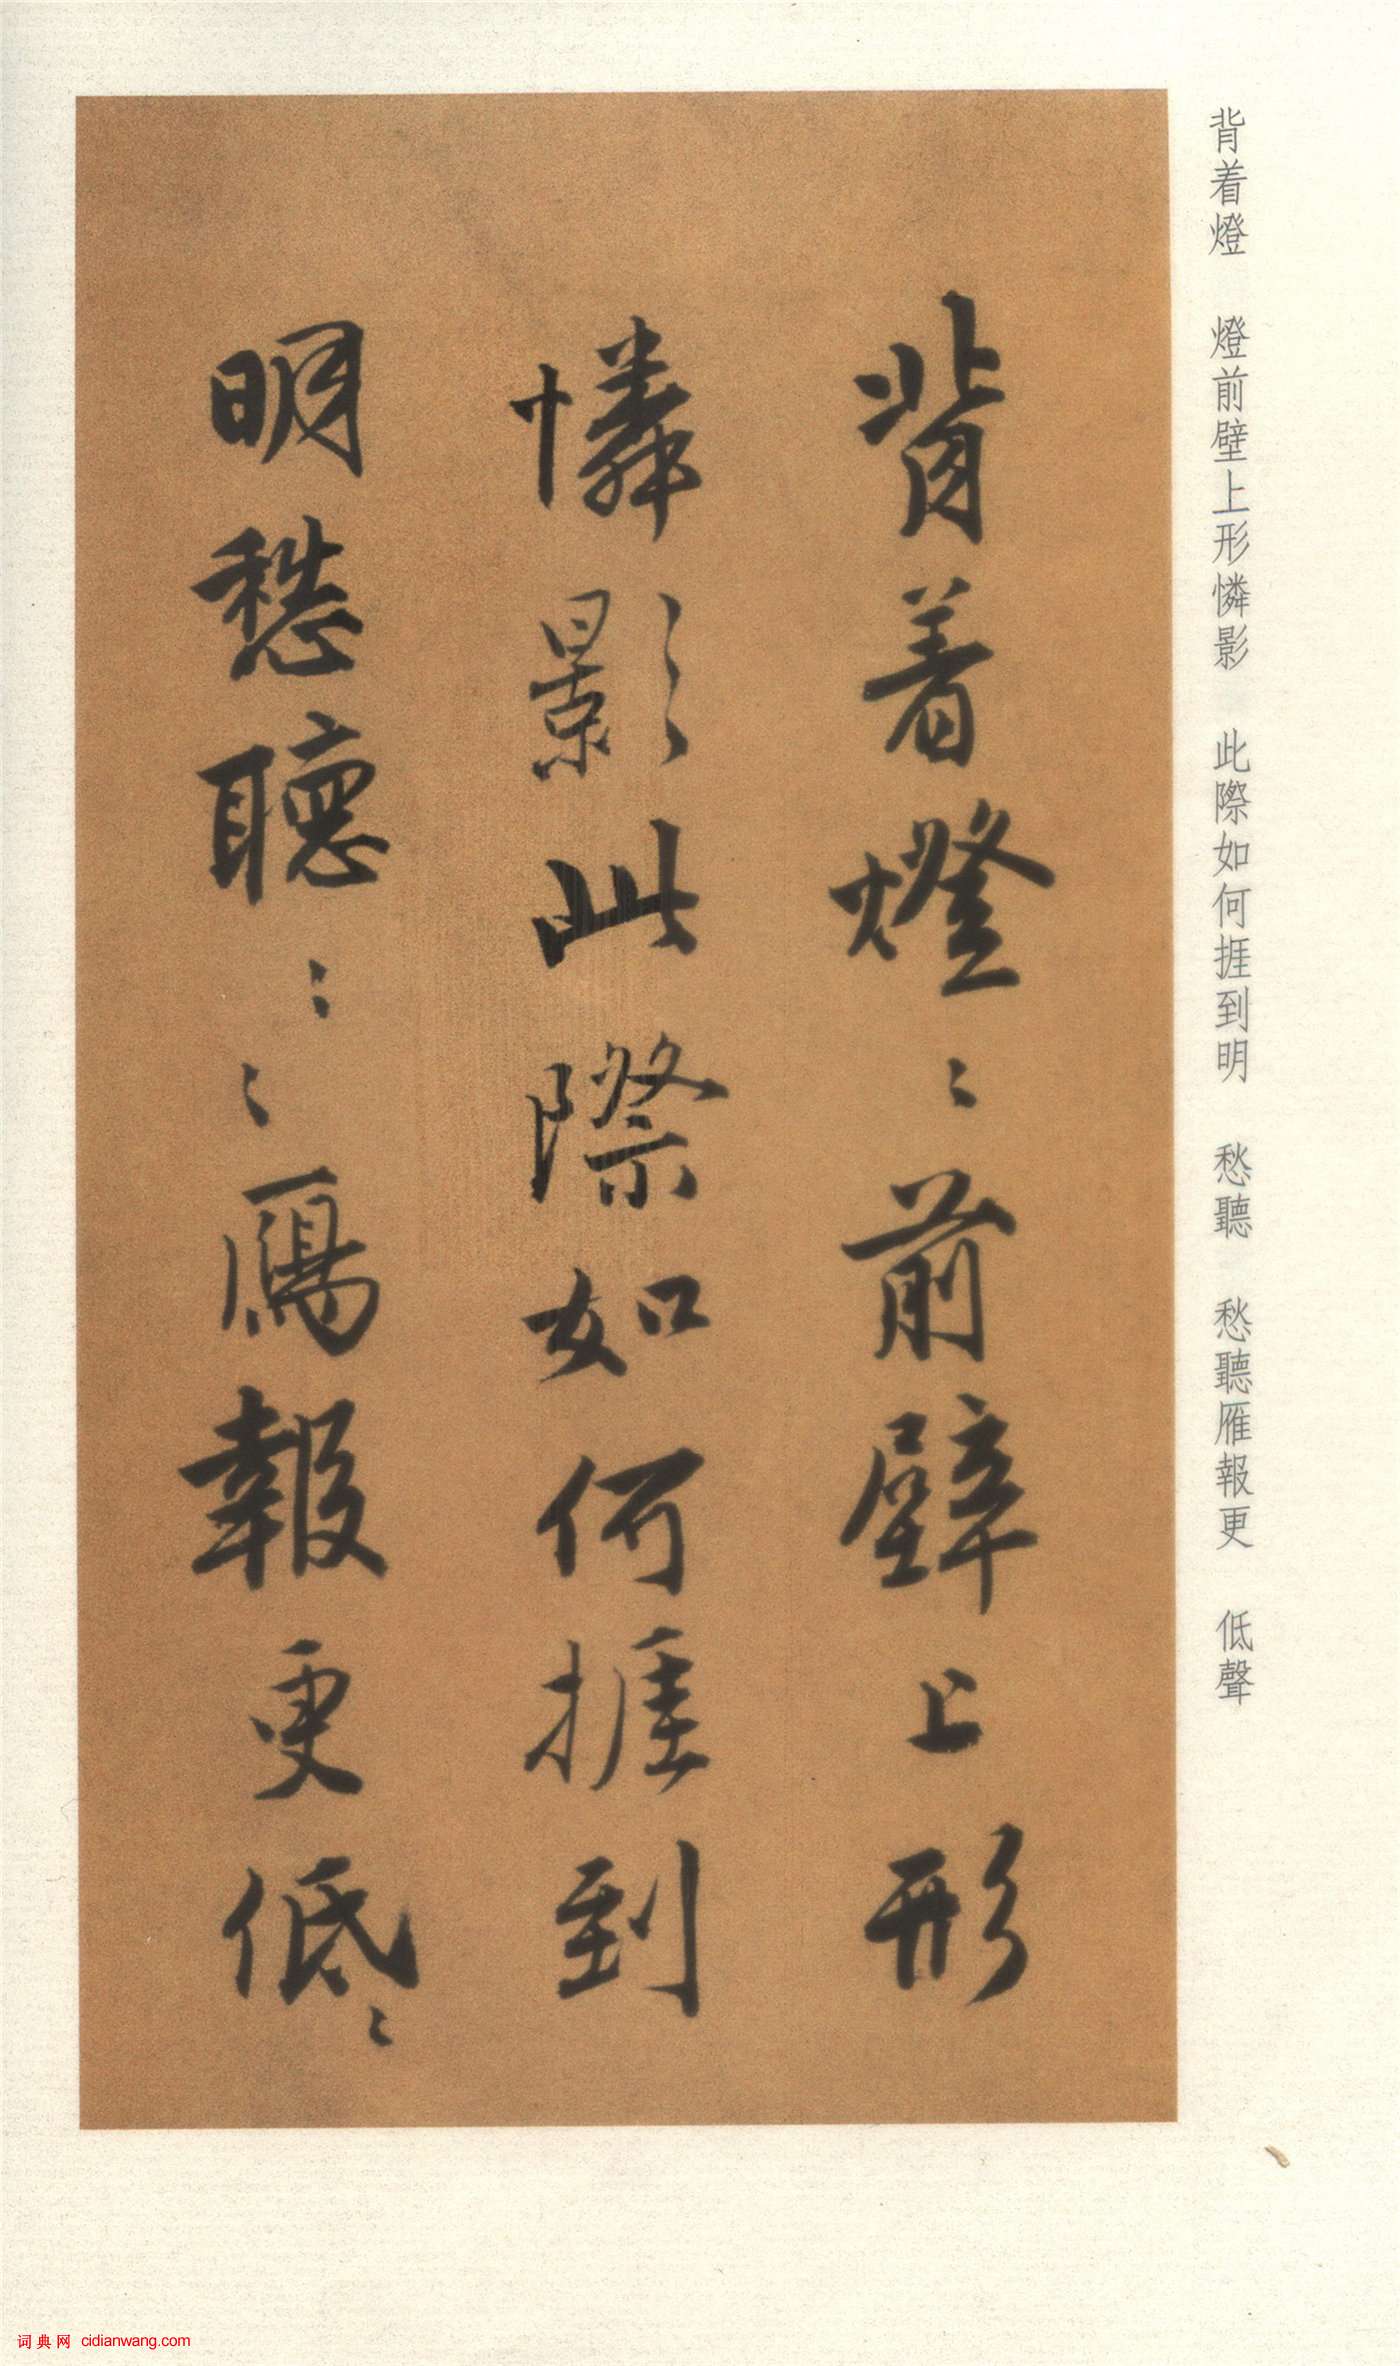 背着燈　燈前壁上形憐影　此際如何捱到明　愁聽　愁聽雁報更　低聲
背着燈〻前壁上形
憐影此際如何捱到
明愁聽〻〻鴈報更低〻
词典网 cidianwang.com